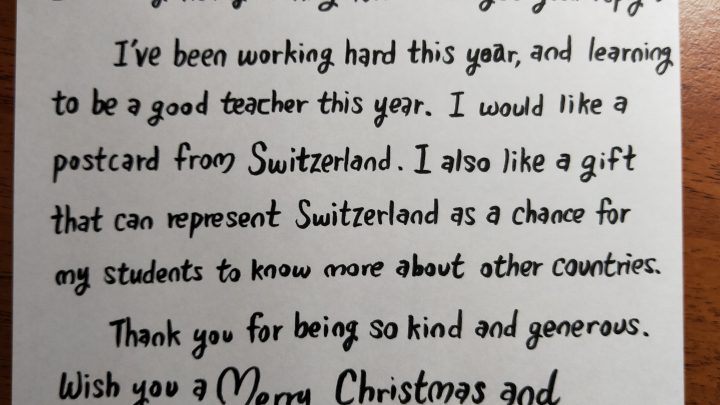 I've been working hard this year, and learning
to be a good teacher this year. I would like a
postcard from Switzerland. I also like a gift
that can represent Switzerland as a chance for
my students to know more about other countries.
Thank you for being so kind and generous.
Wish you a Merry Christmas and